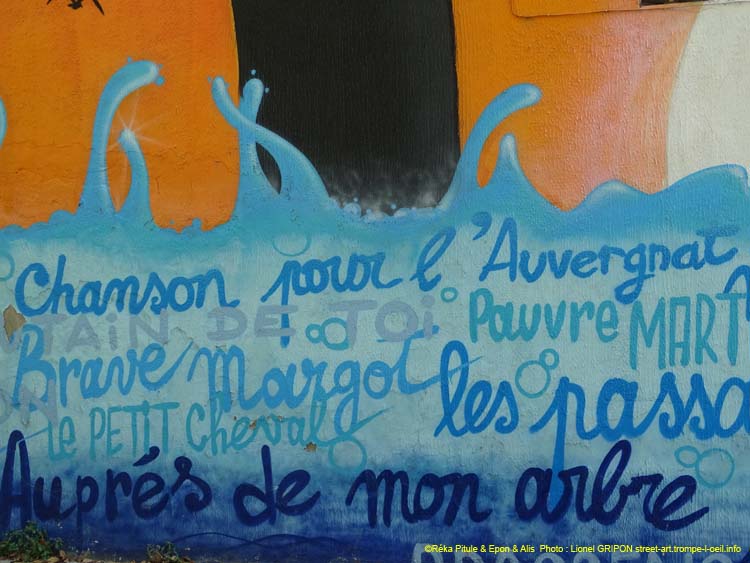 Chanson pour l'Auvergnat
TAiN DE TOi
Pauvre MART
Brave Margot
les passa
le PETIT Cheval
Auprés de mon arbre
©Réka Pitule & Epon & Alis Photo : Lionel GRIPON street-art.trompe-l-oeil.info